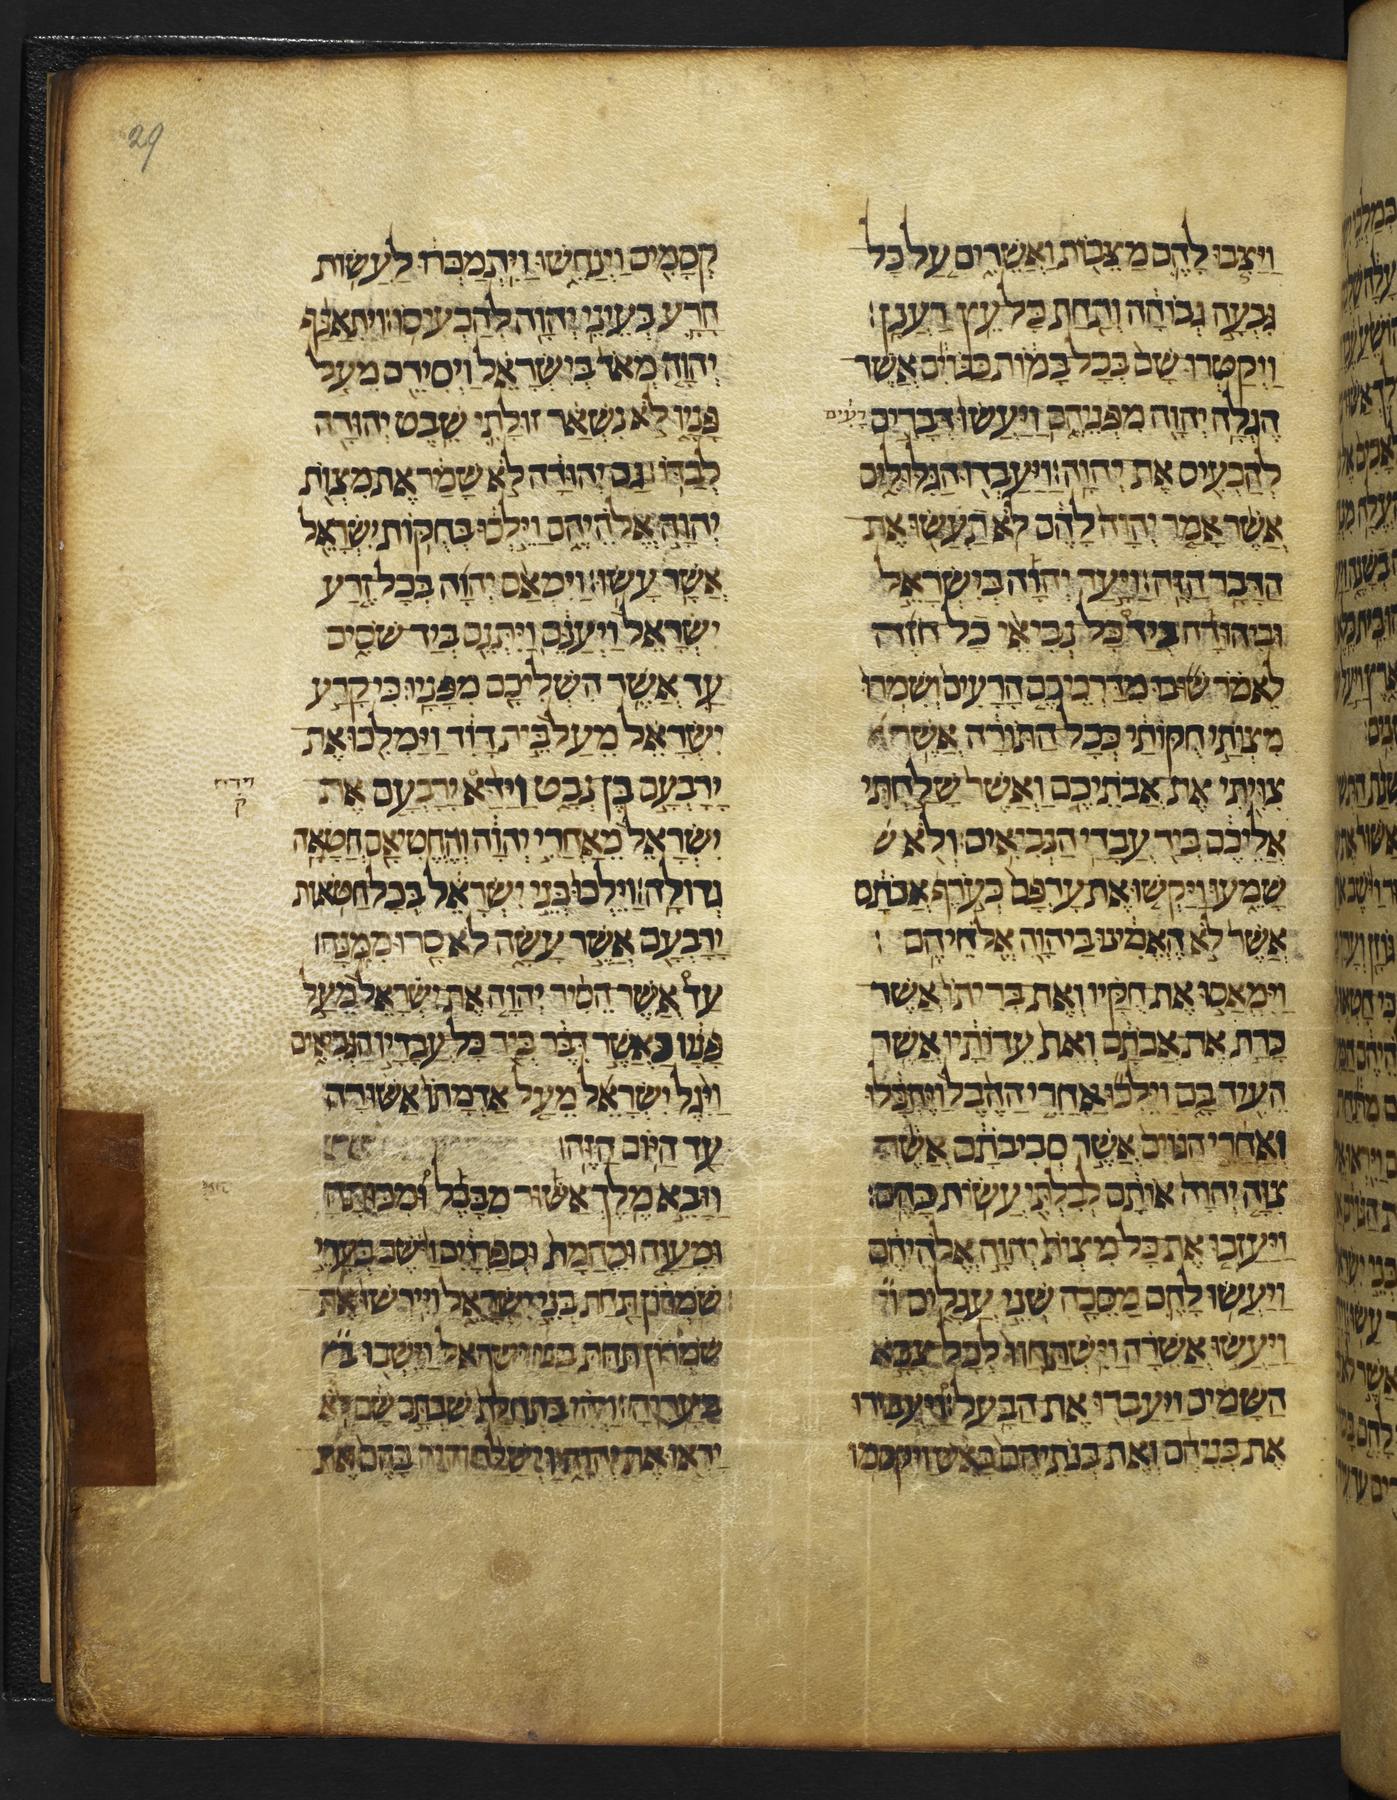 29
וַיַּצִּבוּ לָהֶם מַצֵּבוֹת וַאֲשֵׁרִים עַל כָּל
גִּבְעָה גְבוֹהָה וְתַחַת כָּל עֵץ רַעֲנָן׃
וַיְקַטְּרוּ שָׁם בְּכָל בָּמוֹת כַּגּוֹיִם אֲשֶׁר
הֶגְלָה יְהוָה מִפְּנֵיהֶם וַיַּעֲשׂוּ דְּבָרִים רָעִים
לְהַכְעִיס אֶת יְהוָה׃ וַיַּעַבְדוּ הַגִּלּוּלִים
אֲשֶׁר אָמַר יְהוָה לָהֶם לֹא תַעֲשׂוּ אֶת
הַדָּבָר הַזֶּה׃ וַיָּעַד יְהוָה בְּיִשְׂרָאֵל
וּבִיהוּדָה בְּיַד כָּל נְבִיאֵי כָל חֹזֶה
לֵאמֹר שׁוּבוּ מִדַּרְכֵיכֶם הָרָעִים וְשִׁמְרוּ
מִצְוֹתַי חֻקּוֹתַי כְּכָל הַתּוֹרָה אֲשֶׁר
צִוִּיתִי אֶת אֲבֹתֵיכֶם וַאֲשֶׁר שָׁלַחְתִּי
אֲלֵיכֶם בְּיַד עֲבָדַי הַנְּבִיאִים׃ וְלֹא שׁ
שָׁמֵעוּ וַיַּקְשׁוּ אֶת עָרְפָּם כְּעֹרֶף אֲבֹתָם
אֲשֶׁר לֹא הֶאֱמִינוּ בַּיהוָה אֱלֹהֵיהֶם ׃
וַיִּמְאֲסוּ אֶת חֻקָּיו וְאֶת בְּרִיתוֹ אֲשֶׁר
כָּרַת אֶת אֲבֹתָם וְאֵת עֵדוֹתָיו אֲשֶׁר
הֵעִיד בָּם וַיֵּלְכוּ אַחֲרֵי הַהֶבֶל וַיֶּהְבָּלוּ
וְאַחֲרֵי הַגּוֹיִם אֲשֶׁר סְבִיבֹתָם אֲשֶׁר
צִוָּה יְהוָה אוֹתָם לְבִלְתִּי עֲשׂוֹת כָּהֶם׃
וַיַּעַזְבוּ אֶת כָּל מִצְוֹת יְהוָה אֱלֹהֵיהֶם
וַיַּעֲשׂוּ לָהֶם מַסֵּכָה שְׁנֵי עֲגָלִים
וַיַּעֲשׂוּ אֲשֵׁרָה וַיִּשְׁתַּחֲווּ לְכָל צְבָא
הַשָּׁמַיִם וַיַּעַבְדוּ אֶת הַבָּעַל׃ וַיַּעֲבִירוּ
אֶת בְּנֵיהֶם וְאֶת בְּנוֹתֵיהֶם בָּאֵשׁ וַיִּקְסְמוּ
קְסָמִים וַיְנַחֵשׁוּ וַיִּתְמַכְּרוּ לַעֲשׂוֹת
הָרַע בְּעֵינֵי יְהוָה לְהַכְעִיסוֹ׃ וַיִּתְאַנַּף
יְהוָה מְאֹד בְּיִשְׂרָאֵל וַיְסִירֵם מֵעַל
פָּנָיו לֹא נִשְׁאַר זוּלָתִי שֵׁבֶט יְהוּדָה
לְבַדּוֹ׃ גַּם יְהוּדָה לֹא שָׁמַר אֶת מִצְוֹת
יְהוָה אֱלֹהֵיהֶם וַיֵּלְכוּ בְּחֻקּוֹת יִשְׂרָאֵל
אֲשֶׁר עָשׂוּ׃ וַיִּמְאַס יְהוָה בְּכָל זֶרַע
יִשְׂרָאֵל וַיְעַנֵּם וַיִּתְּנֵם בְּיַד שֹׁסִים
עַד אֲשֶׁר הִשְׁלִיכָם מִפָּנָיו׃ כִּי קָרַע
יִשְׂרָאֵל מֵעַל בֵּית דָּוִד וַיַּמְלִכוּ אֶת
יָרָבְעָם בֶּן נְבָט וַיַּדֵּא יָרָבְעָם אֶת
יִשְׂרָאֵל מֵאַחֲרֵי יְהוָה וְהֶחֱטִיאָם חֲטָאָה
גְדוֹלָה׃ וַיֵּלְכוּ בְּנֵי יִשְׂרָאֵל בְּכָל חַטֹּאות
יָרָבְעָם אֲשֶׁר עָשָׂה לֹא סָרוּ מִמֶּנָּה׃
עַד אֲשֶׁר הֵסִיר יְהוָה אֶת יִשְׂרָאֵל מֵעַל
פָּנָיו כַּאֲשֶׁר דִּבֶּר בְּיַד כָּל עֲבָדָיו הַנְּבִיאִים
וַיִּגֶל יִשְׂרָאֵל מֵעַל אַדְמָתוֹ אַשּׁוּרָה
עַד הַיּוֹם הַזֶּה׃
וַיָּבֵא מֶלֶךְ אַשּׁוּר מִבָּבֶל וּמִכּוּתָה
וּמֵעַוָּא וּמֵחֲמָת וּסְפַרְוַיִם וַיֹּשֶׁב בְּעָרֵי
שֹׁמְרוֹן תַּחַת בְּנֵי יִשְׂרָאֵל וַיִּירְשׁוּ אֶת
שֹׁמְרוֹן תַּחַת בְּנֵי יִשְׂרָאֵל וַיֵּשְׁבוּ
בְּעָרֶיהָ׃ וַיְהִי בִּתְחִלַּת שִׁבְתָּם שָׁם לֹא
יָרְאוּ אֶת יְהוָה וַיְשַׁלַּח יְהוָה בָּהֶם אֶת
וידח
ק